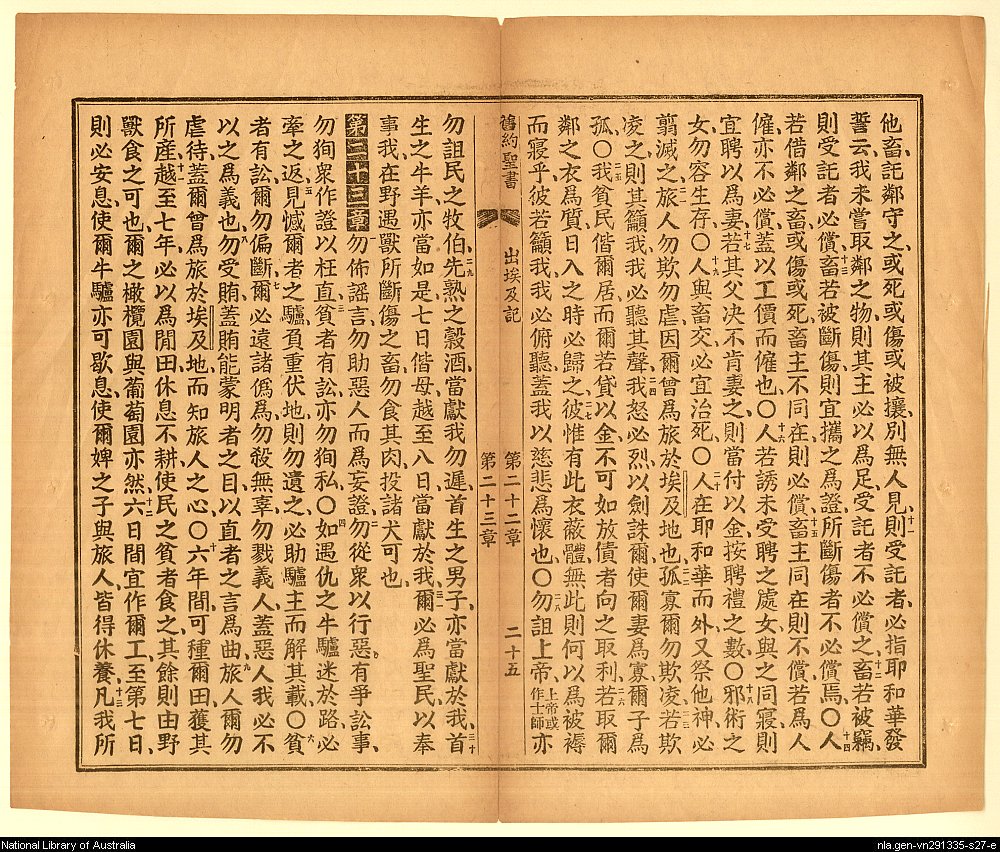 他畜託鄰守之或死或傷或被攘別無人見則受託者必指耶和華發
誓云我未嘗取鄰之物則其主必以爲足受託者不必償之畜若被竊
則受託者必償畜若被斷傷則宜攜之爲證所斷傷者不必償焉〇人
若借鄰之畜或傷或死畜主不同在則必償畜主同在則不償若爲人
僱亦不必償蓋以工價而僱也〇人若誘未受聘之處女與之同寢則
宜聘以爲妻若其父決不肯妻之則當付以金按聘禮之數〇邪術之
女勿容生存〇人與畜交必宜治死〇人在耶和華而外又祭他神必
翦滅之旅人勿欺勿虐因爾曾爲旅於埃及地也孤寡爾勿欺凌若欺
凌之則其籲我我必聽其聲我怒必烈以劍誅爾使爾妻爲寡爾子爲
孤〇我貧民偕爾居而爾若貸以金不可如放債者向之取利若取爾
鄰之衣爲質日入之時必歸之彼惟有此衣蔽體無此則何以爲被褥
而寢乎彼若籲我我必俯聽蓋我以慈悲爲懷也〇勿詛上帝上帝或作士師亦
舊約聖書 出埃及記 第二十二章 二十五
第二十三章
勿詛民之牧伯先熟之穀酒當獻我勿遲首生之男子亦當獻於我首
生之牛羊亦當如是七日偕母越至八日當獻於我爾必爲聖民以奉
事我在野遇獸所斷傷之畜勿食其肉投諸犬可也
第二十三章勿佈謠言勿助惡人而爲妄證勿從衆以行惡有爭訟事
勿狥衆作證以枉直貧者有訟亦勿狥私〇如遇仇之牛驢迷於路必
牽之返見憾爾者之驢負重伏地則勿遺之必助驢主而解其載〇貧
者有訟爾勿偏斷爾必遠諸僞爲勿殺無辜勿戮義人蓋惡人我必不
以之爲義也勿受賄蓋賄能蒙明者之目以直者之言爲曲旅人爾勿
虐待蓋爾曾爲旅於埃及地而知旅人之心〇六年間可種爾田獲其
所產越至七年必以爲閒田休息不耕使民之貧者食之其餘則由野
獸食之可也爾之橄欖園與葡萄園亦然六日間宜作爾工至第七日
則必安息使爾牛驢亦可歇息使爾婢之子與旅人皆得休養凡我所
National Library of Australia
nla.gen-vn291335-s27-e